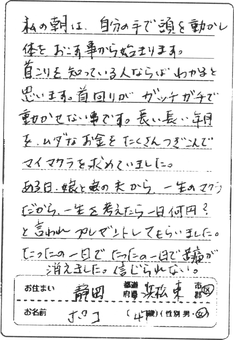 私の朝は、自分の手で頭を動かし
体をおこす事から始まります。
首こりを知っている人ならばわかると
思います。首回りがガッチガチで
動かせない事です。長い長い年月
を、ムダなお金をたくさんつぎこんで
マイマクラを求めていました。
ある日、娘と娘の夫から、一生のマクラ
だから、一生を考えたら一日何円?
と言われプレゼントしてもらいました。
たったの一日でたったの一日で
消えました。信じられない。
お住まい 静岡 都道府県 浜松東 市郡区
お名前 (4 歳) (性別 男・女)